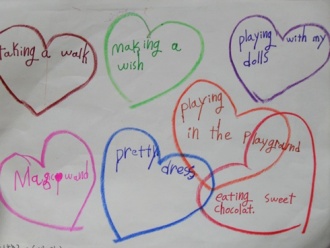 taking a walk
making a
wish
playing with my
dolls
playing
in the playground
Magic wand
pretty
dress
eating sweet
chocolat.